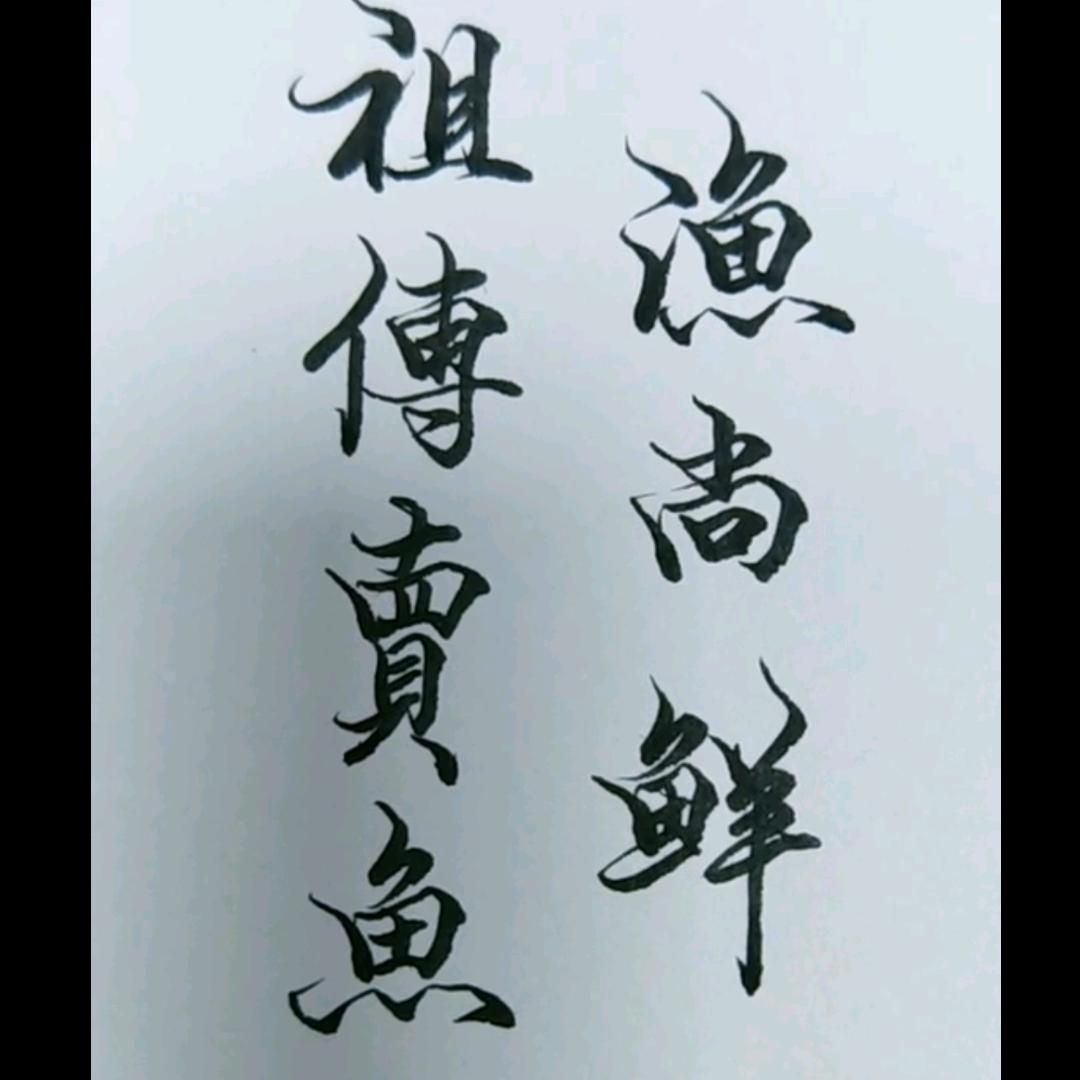 漁尚鮮
祖傳賣魚